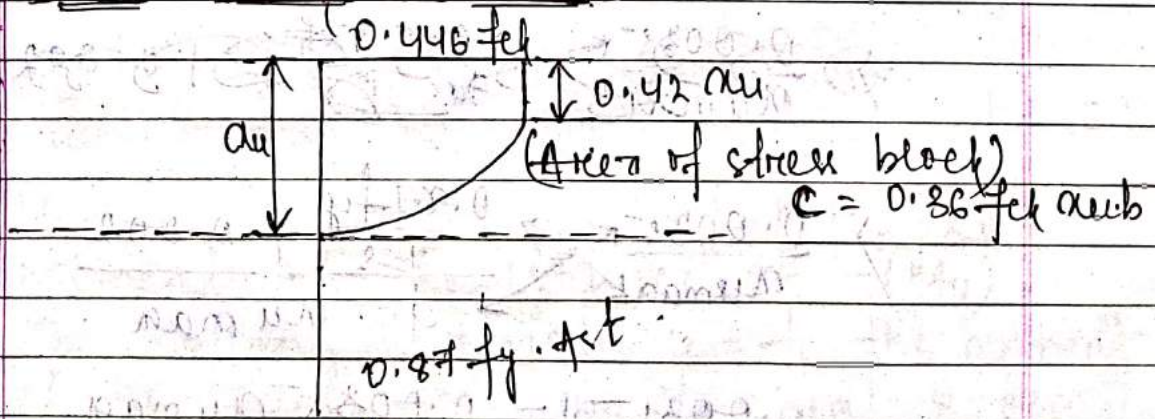 0.446 fck
xu
0.42 xu
(Area of stress block)
C = 0.36 fck xu.b
0.87 fy . Ast